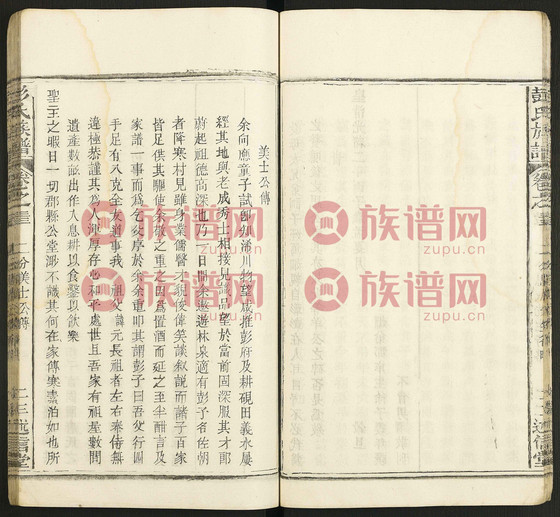 美士公傳
余向應童子試即知浠川物望咸推彭府及耕硯田義水屢
經其地與老成秀士相接見識品望於當前固深服其才郎
蔚起祖德高深也乃一日閒余遨遊林泉適有彭子名佐朝
者降寒村見雖身業儒醫才貌俊偉笑談叙說而諸子百家
皆足供其驅使余敬之重之因爲置酒而延之至半酣言及
家譜一事而爲乞余序於余余重叩其詳彭子曰吾父行圍
手足有八克全友道事我祖父諱元長祖者左右奉侍無
違極恭謹其爲人渾厚存心和平處世且吾家有祖業數間
遺產數畝出作入息耕以食鑿以飲樂
聖王之暇日一切郡縣公堂渺不識其何在家傳寒素泊如也所
彭氏族譜 卷之三 二份美士公傳 二三 述信堂
彭氏族譜 卷之三 述信堂
族谱网 族谱网
族谱网 族谱网